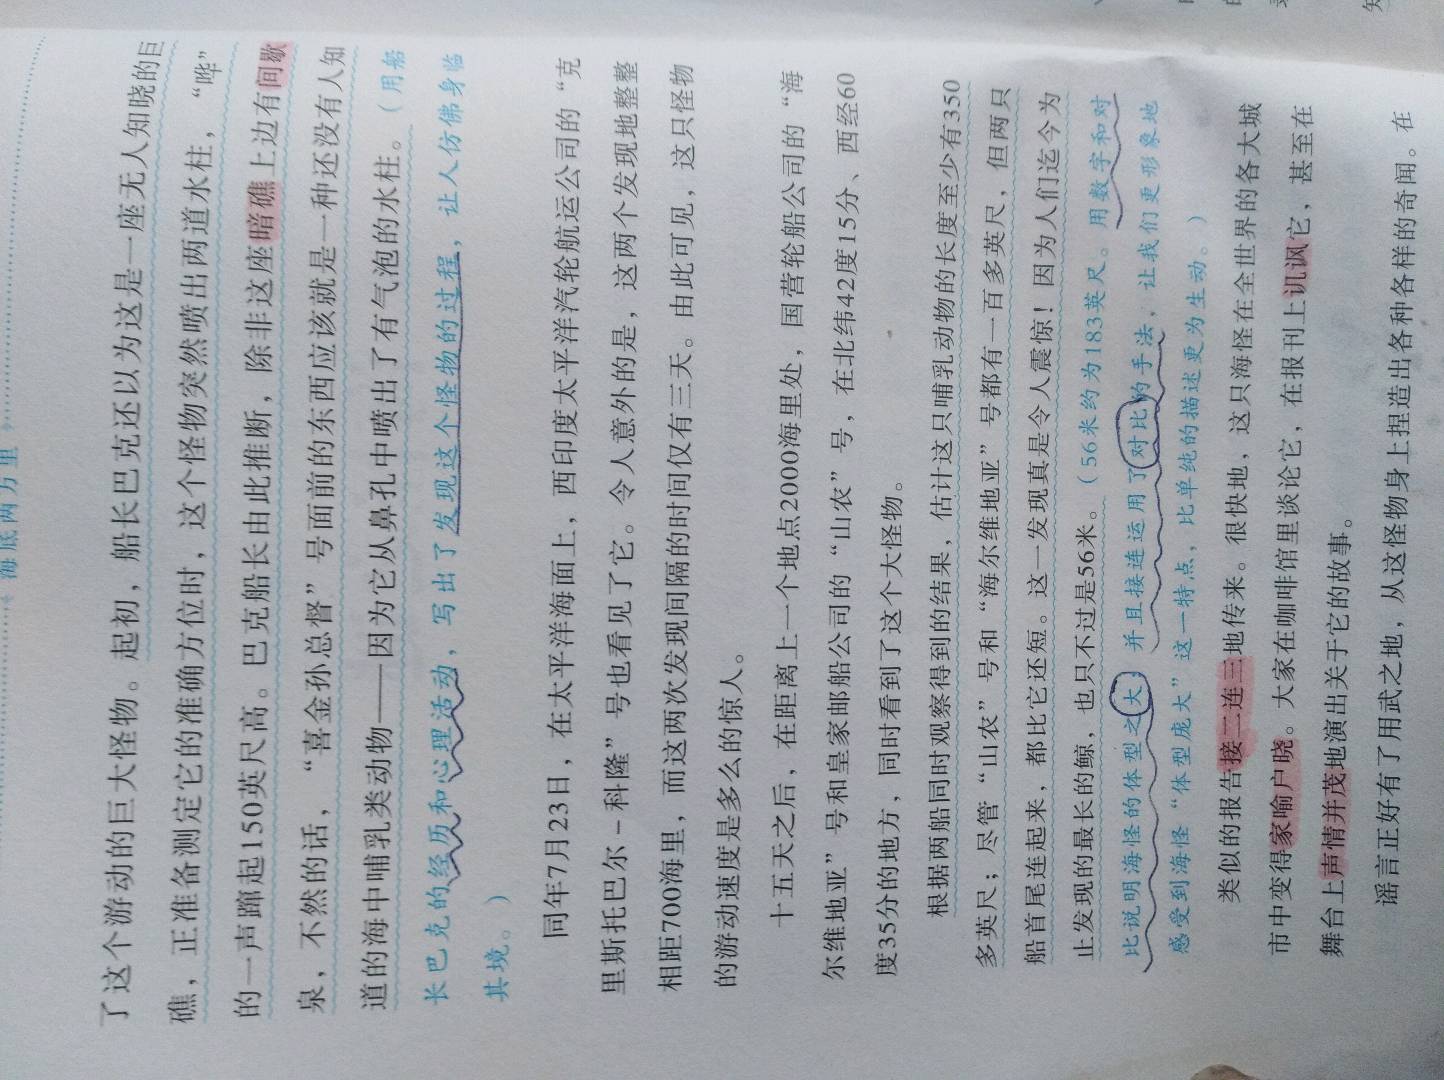 海底两万里
了这个游动的巨大怪物。起初，船长巴克还以为这是一座无人知晓的巨
礁，正准备测定它的准确方位时，这个怪物突然喷出两道水柱，“哗”
的一声蹿起150英尺高。巴克船长由此推断，除非这座暗礁上边有间歇
泉，不然的话，“喜金孙总督”号面前的东西应该就是一种还没有人知
道的海中哺乳类动物——因为它从鼻孔中喷出了有气泡的水柱。（用船
长巴克的经历和心理活动，写出了发现这个怪物的过程，让人仿佛身临
其境。）
同年7月23日，在太平洋海面上，西印度太平洋汽轮航运公司的“克
里斯托巴尔-科隆”号也看见了它。令人意外的是，这两个发现地整整
相距700海里，而这两次发现间隔的时间仅有三天。由此可见，这只怪物
的游动速度是多么的惊人。
十五天之后，在距离上一个地点2000海里处，国营轮船公司的“海
尔维地亚”号和皇家邮船公司的“山农”号，在北纬42度15分、西经60
度35分的地方，同时看到了这个大怪物。
根据两船同时观察得到的结果，估计这只哺乳动物的长度至少有350
多英尺；尽管“山农”号和“海尔维地亚”号都有一百多英尺，但两只
船首尾连起来，都比它还短。这一发现真是令人震惊！因为人们迄今为
止发现的最长的鲸，也只不过是56米。（56米约为183英尺。用数字和对
比说明海怪的体型之大，并且接连运用了对比的手法，让我们更形象地
感受到海怪“体型庞大”这一特点，比单纯的描述更为生动。）
类似的报告接二连三地传来。很快地，这只海怪在全世界的各大城
市中变得家喻户晓。大家在咖啡馆里谈论它，在报刊上讥讽它，甚至在
舞台上声情并茂地演出关于它的故事。
谣言正好有了用武之地，从这怪物身上捏造出各种各样的奇闻。在